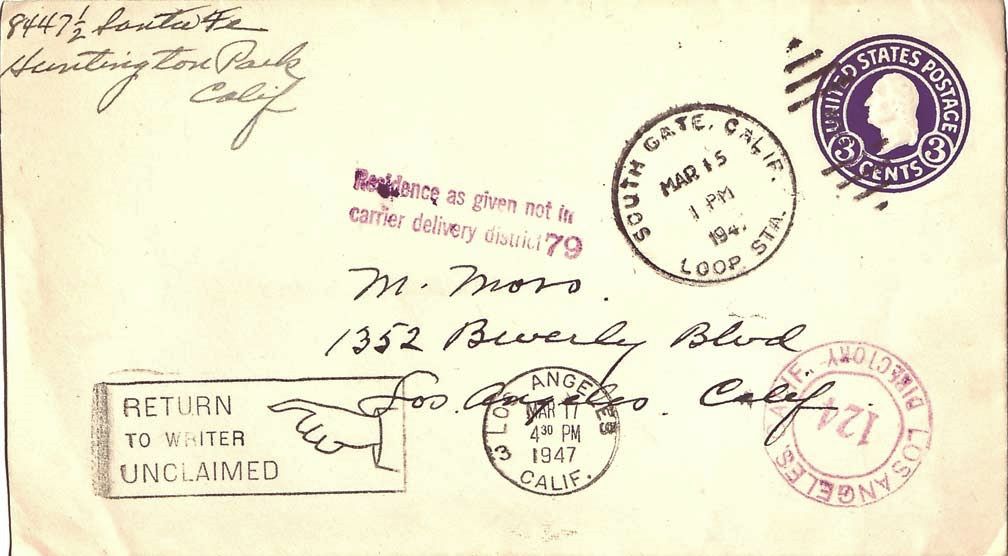 8447 1/2 Santa Fe
Huntington Park
Calif
UNITED STATES POSTAGE
3 CENTS 3
SOUTH GATE, CALIF.
MAR 15
1 PM
194
LOOP STA.
Residence as given not in
carrier delivery district 79
M. Moss.
1352 Beverly Blvd
Los Angeles. Calif.
RETURN
TO WRITER
UNCLAIMED
LOS ANGELES 3
MAR 17
4 30 PM
1947
CALIF.
LOS ANGELES CALIF. DIRECTORY
124